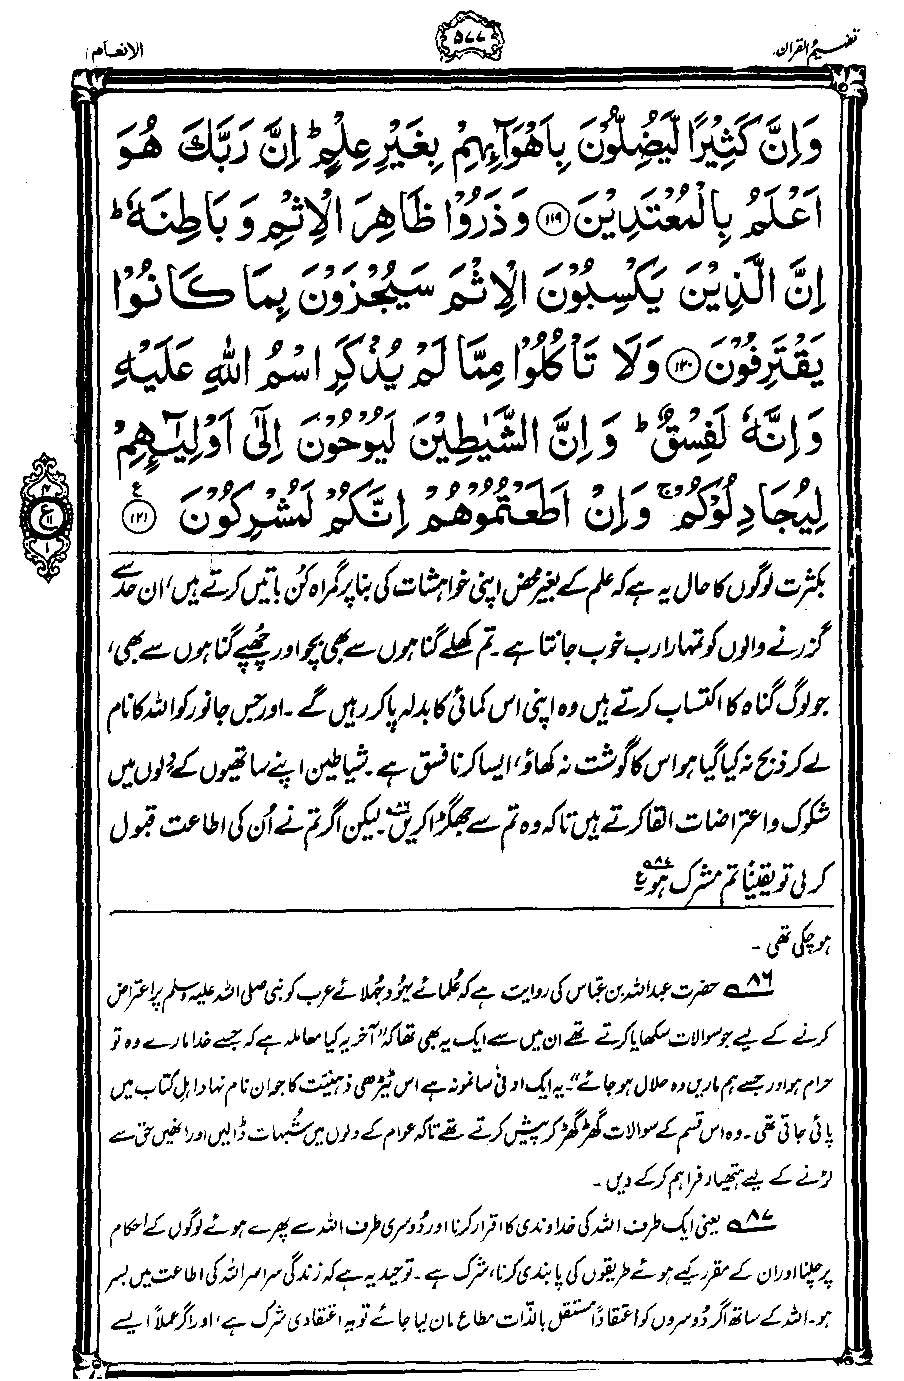 تفہیم القرآن
۵۷۷
الانعام
وَاِنَّ كَثِيْرًا لَّيُضِلُّوْنَ بِاَهْوَآىِٕهِمْ بِغَيْرِ عِلْمٍ ؕ اِنَّ رَبَّكَ هُوَ
اَعْلَمُ بِالْمُعْتَدِيْنَ ﴿۱۱۹﴾ وَذَرُوْا ظَاهِرَ الْاِثْمِ وَبَاطِنَهٗ ؕ
اِنَّ الَّذِيْنَ يَكْسِبُوْنَ الْاِثْمَ سَيُجْزَوْنَ بِمَا كَانُوْا
يَقْتَرِفُوْنَ ﴿۱۲۰﴾ وَلَا تَاْكُلُوْا مِمَّا لَمْ يُذْكَرِ اسْمُ اللّٰهِ عَلَيْهِ
وَاِنَّهٗ لَفِسْقٌ ؕ وَاِنَّ الشَّيٰطِيْنَ لَيُوْحُوْنَ اِلٰٓى اَوْلِيٰٓـِٕهِمْ
لِيُجَادِلُوْكُمْ ۚ وَاِنْ اَطَعْتُمُوْهُمْ اِنَّكُمْ لَمُشْرِكُوْنَ ﴿۱۲۱﴾ ع
بکثرت لوگوں کا حال یہ ہے کہ علم کے بغیر محض اپنی خواہشات کی بنا پر گمراہ کُن باتیں کرتے ہیں، ان حد سے
گزرنے والوں کو تمہارا رب خوب جانتا ہے۔ تم کھلے گناہوں سے بھی بچو اور چھُپے گناہوں سے بھی،
جو لوگ گناہ کا اکتساب کرتے ہیں وہ اپنی اس کمائی کا بدلہ پا کر رہیں گے۔ اور جس جانور کو اللہ کا نام
لے کر ذبح نہ کیا گیا ہو اس کا گوشت نہ کھاؤ، ایسا کرنا فسق ہے۔ شیاطین اپنے ساتھیوں کے دلوں میں
شکوک و اعتراضات القا کرتے ہیں تاکہ وہ تم سے جھگڑا کریں۔۸۶ لیکن اگر تم نے اُن کی اطاعت قبول
کر لی تو یقیناً تم مشرک ہو۔۸۷ ع
ہو چکی تھی۔
۸۶ حضرت عبداللہ بن عباس کی روایت ہے کہ عُلمائے یہُود جُہلائے عرب کو نبی صلی اللہ علیہ وسلم پر اعتراض
کرنے کے لیے جو سوالات سکھایا کرتے تھے ان میں سے ایک یہ بھی تھا کہ "آخر یہ کیا معاملہ ہے کہ جسے خدا مارے وہ تو
حرام ہو اور جسے ہم ماریں وہ حلال ہو جائے"۔ یہ ایک ادنیٰ سا نمونہ ہے اس ٹیڑھی ذہنیت کا جو ان نام نہاد اہل کتاب میں
پائی جاتی تھی۔ وہ اس قسم کے سوالات گھڑ گھڑ کر پیش کرتے تھے تاکہ عوام کے دلوں میں شُبہات ڈالیں اور انھیں حق سے
لڑنے کے لیے ہتھیار فراہم کر کے دیں۔
۸۷ یعنی ایک طرف اللہ کی خداوندی کا اقرار کرنا اور دُوسری طرف اللہ سے پھرے ہوئے لوگوں کے احکام
پر چلنا اور ان کے مقرر کیے ہوئے طریقوں کی پابندی کرنا، شرک ہے۔ توحید یہ ہے کہ زندگی سراسر اللہ کی اطاعت میں بسر
ہو۔ اللہ کے ساتھ اگر دُوسروں کو اعتقاداً مستقل بالذات مطاع مان لیا جائے تو یہ اعتقادی شرک ہے، اور اگر عملاً ایسے